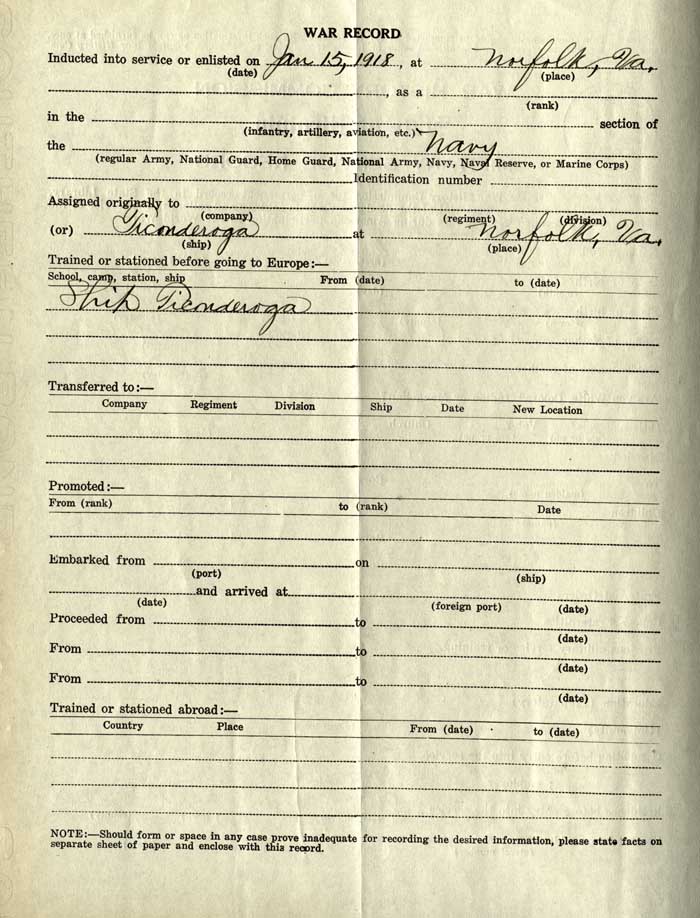 WAR RECORD
Inducted into service or enlisted on Jan 15, 1918, at Norfolk, Va.
(date) (place)
, as a
(rank)
in the section of
(infantry, artillery, aviation, etc.)
the Navy
(regular Army, National Guard, Home Guard, National Army, Navy, Naval Reserve, or Marine Corps)
Identification number
Assigned originally to
(company) (regiment) (division)
(or) Ticonderoga at Norfolk, Va.
(ship) (place)
Trained or stationed before going to Europe:—
School, camp, station, ship From (date) to (date)
Ship Ticonderoga
Transferred to:—
Company Regiment Division Ship Date New Location
Promoted:—
From (rank) to (rank) Date
Embarked from on
(port) (ship)
and arrived at
(date) (foreign port) (date)
Proceeded from to
(date)
From to
(date)
From to
(date)
Trained or stationed abroad:—
Country Place From (date) to (date)
NOTE:—Should form or space in any case prove inadequate for recording the desired information, please state facts on
separate sheet of paper and enclose with this record.